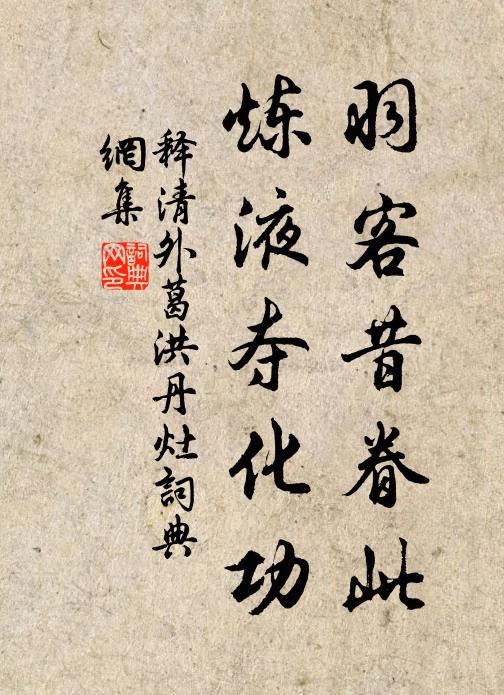 羽客昔眷此
炼液夺化功
释清外葛洪丹灶詞典
網集
詞典
网印